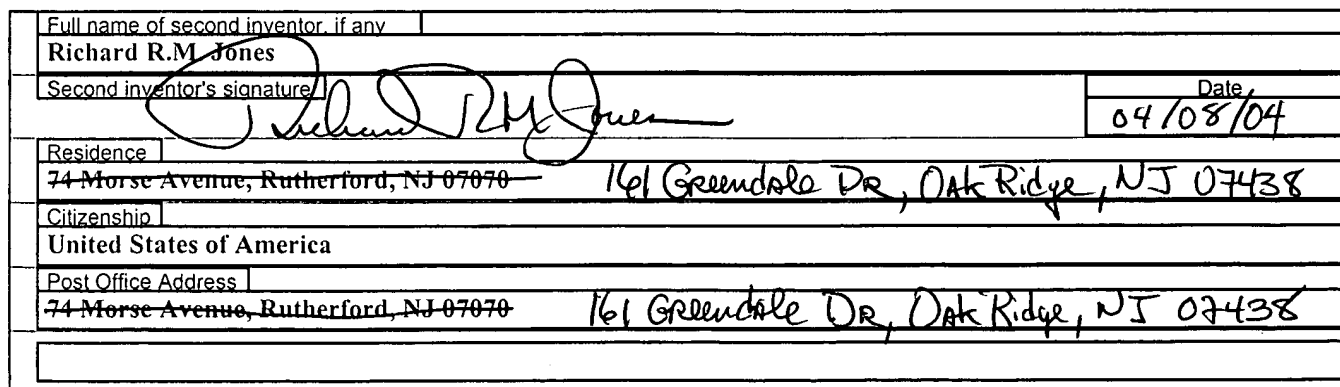 Full name of second inventor, if any
Richard R.M. Jones
Second inventor's signature
Richard RM Jones
Date
04/08/04
Residence
74 Morse Avenue, Rutherford, NJ 07070 161 Greendale DR, Oak Ridge, NJ 07438
Citizenship
United States of America
Post Office Address
74 Morse Avenue, Rutherford, NJ 07070 161 Greendale DR, Oak Ridge, NJ 07438